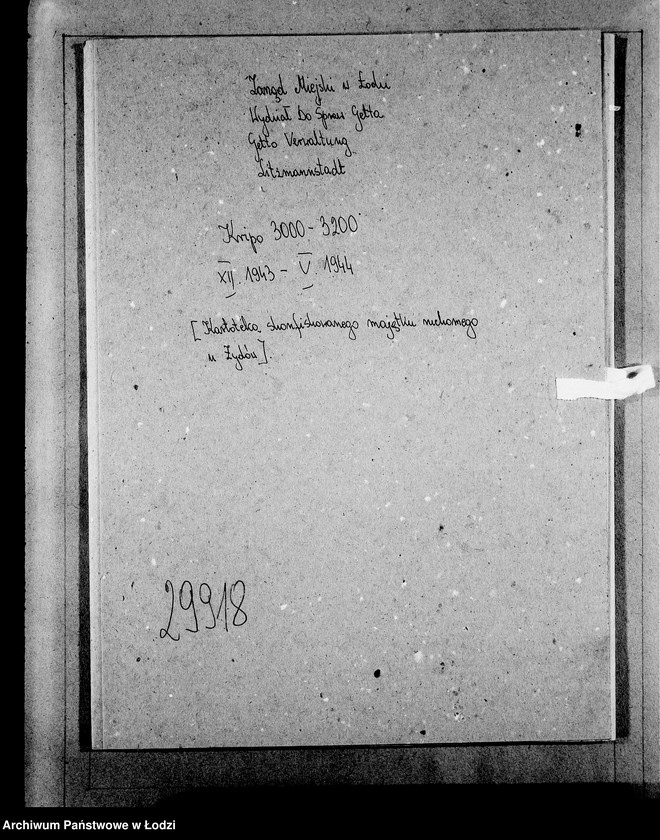 Zarząd Miejski w Łodzi
Wydział Do Spraw Getta
Getto Verwaltung
Litzmannstadt
Kripo 3000 - 3200
XII. 1943 - V. 1944
[Kartoteka skonfiskowanego majątku ruchomego
u Żydów].
29918
Archiwum Państwowe w Łodzi